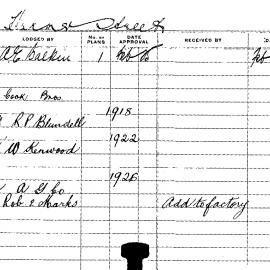 Street
LODGED BY No. OF PLANS DATE APPROVAL RECEIVED BY
1 Feb
Cook Bros
1918
R.P. Blundell
1922
W Kenwood
1926
A G Co
Rob & Marks Add to factory